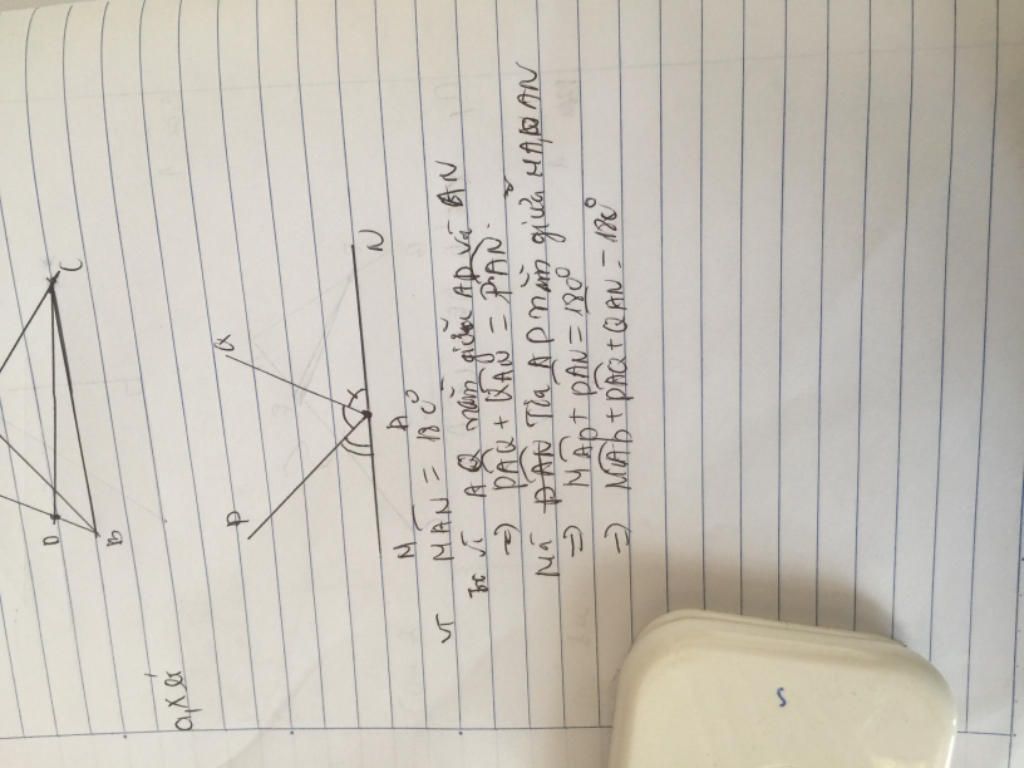 D
B
C
a, Xét
P
Q
M
A
N
vì MAN = 180°
vì AQ nằm giữa AP và AN
=> PAQ + QAN = PAN.
Mà PAN Tia AP nằm giữa MA AN
=> MAP + PAN = 180°
=> MAP + PAQ + QAN = 180°
S